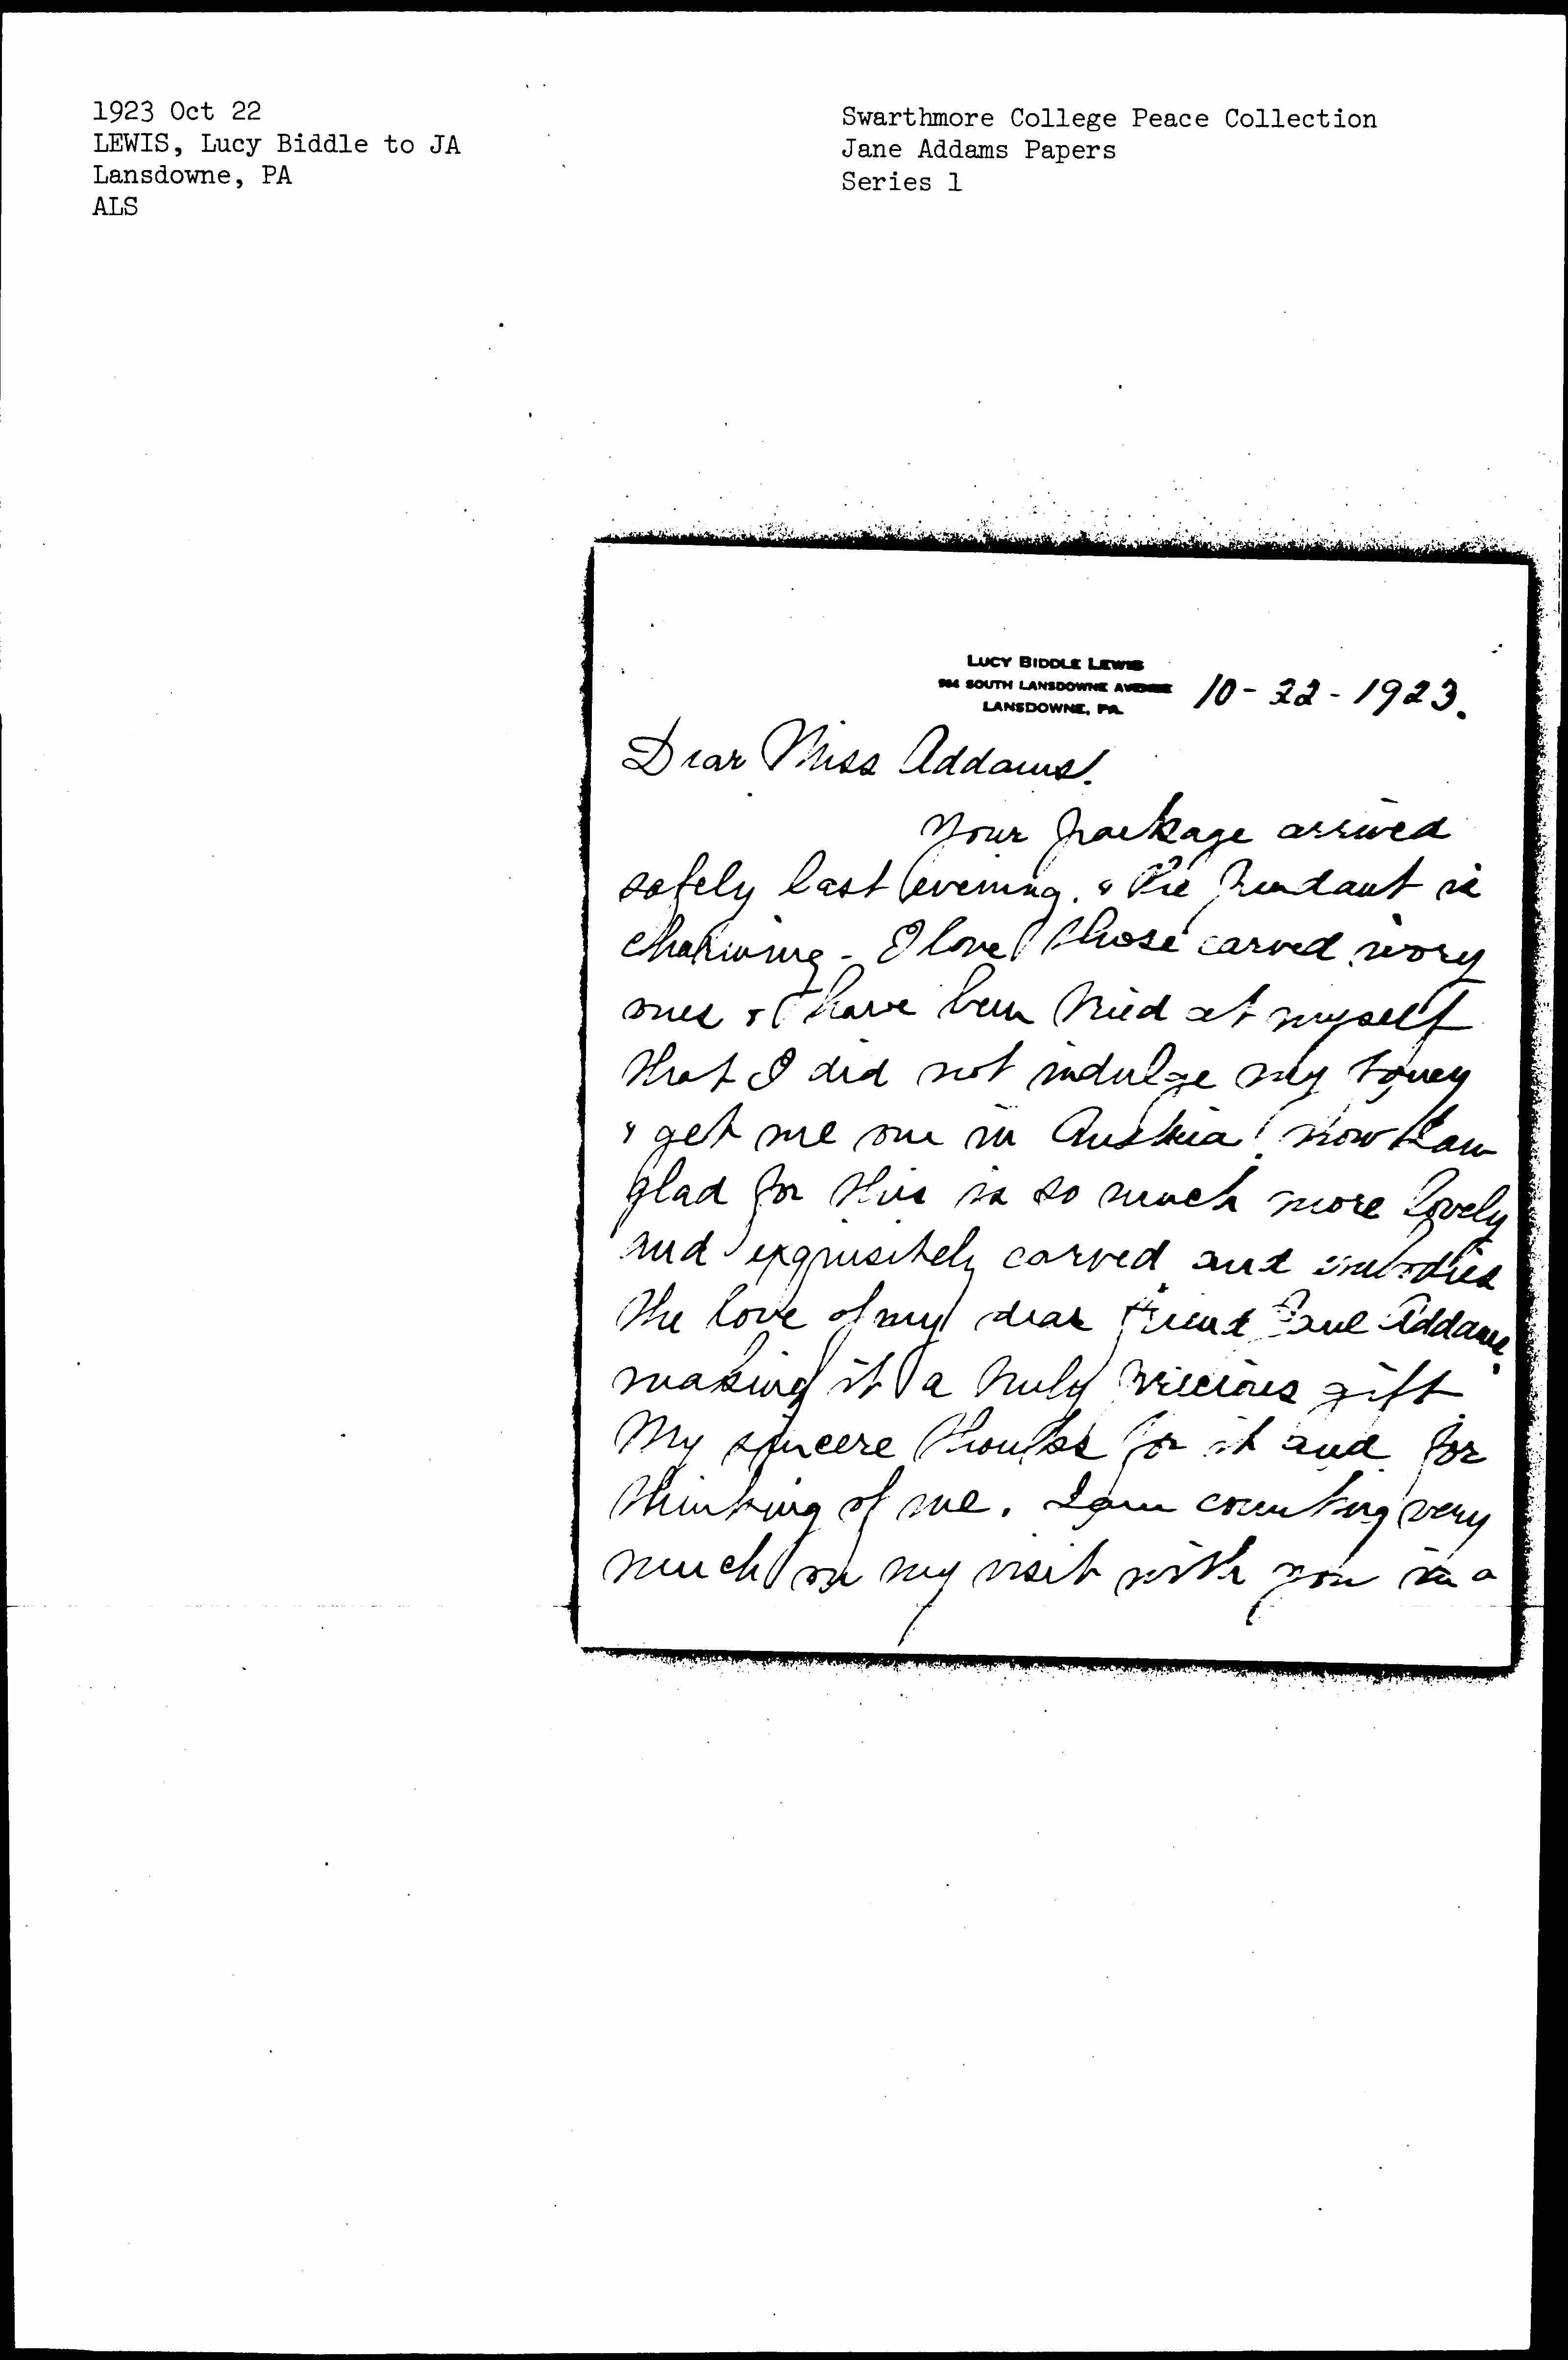 1923 Oct 22
LEWIS, Lucy Biddle to JA
Lansdowne, PA
ALS
Swarthmore College Peace Collection
Jane Addams Papers
Series 1
LUCY BIDDLE LEWIS
SOUTH LANSDOWNE AVENUE
LANSDOWNE, PA.
10-22-1923.
Dear Miss Addams.
Your package arrived
safely last evening. & the pendant is
charming - I love those carved ivory
ones & I have been tried at myself
that I did not indulge my fancy
& get me one in Austria! now I am
glad for this is so much more lovely
and exquisitely carved and embodies
the love of my dear friend Jane Addams,
making it a truly precious gift
My sincere thanks for it and for
thinking of me. I am counting very
much on my visit with you in a